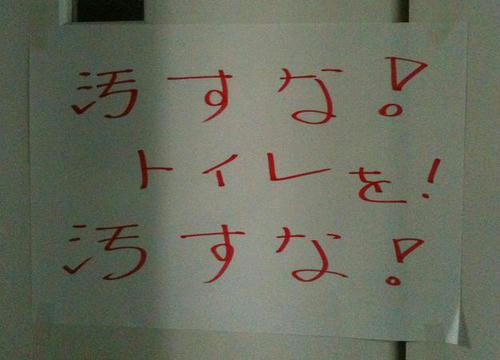 汚すな！
トイレを！
汚すな！